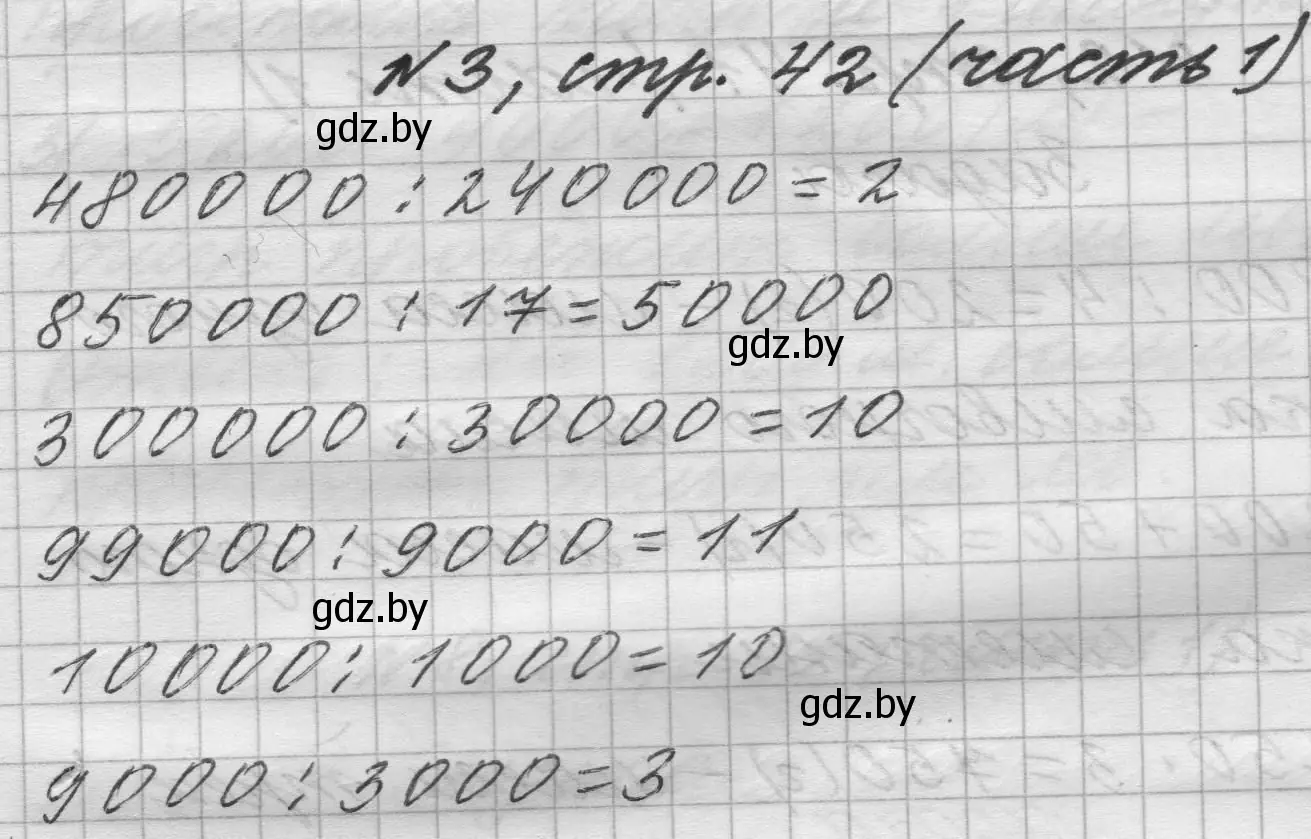 №3, стр. 42 (часть 1)
gdz.by
480000 : 240000 = 2
850000 : 17 = 50000
gdz.by
300000 : 30000 = 10
99000 : 9000 = 11
gdz.by
10000 : 1000 = 10
gdz.by
9000 : 3000 = 3